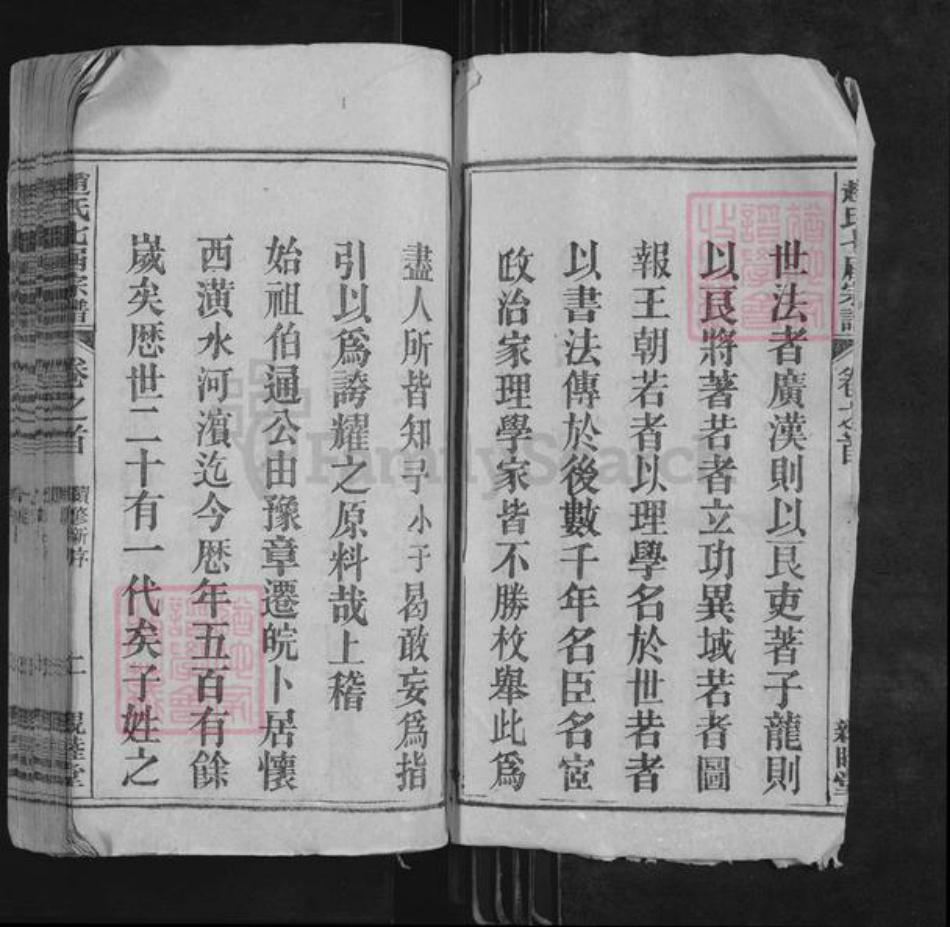 世法者廣漢則以良吏著子龍則
以良將著若者立功異域若者圖
報王朝若者以理學名於世若者
以書法傳於後數千年名臣名宦
政治家理學家皆不勝枚舉此爲
盡人所皆知予小子曷敢妄爲指
引以爲誇耀之原料哉上稽
始祖伯通公由豫章遷皖卜居懷
西潢水河濱迄今歷年五百有餘
歲矣歷世二十有一代矣子姓之
趙氏七甲宗譜
卷之首
續修新序
二
親睦堂
FamilySearch